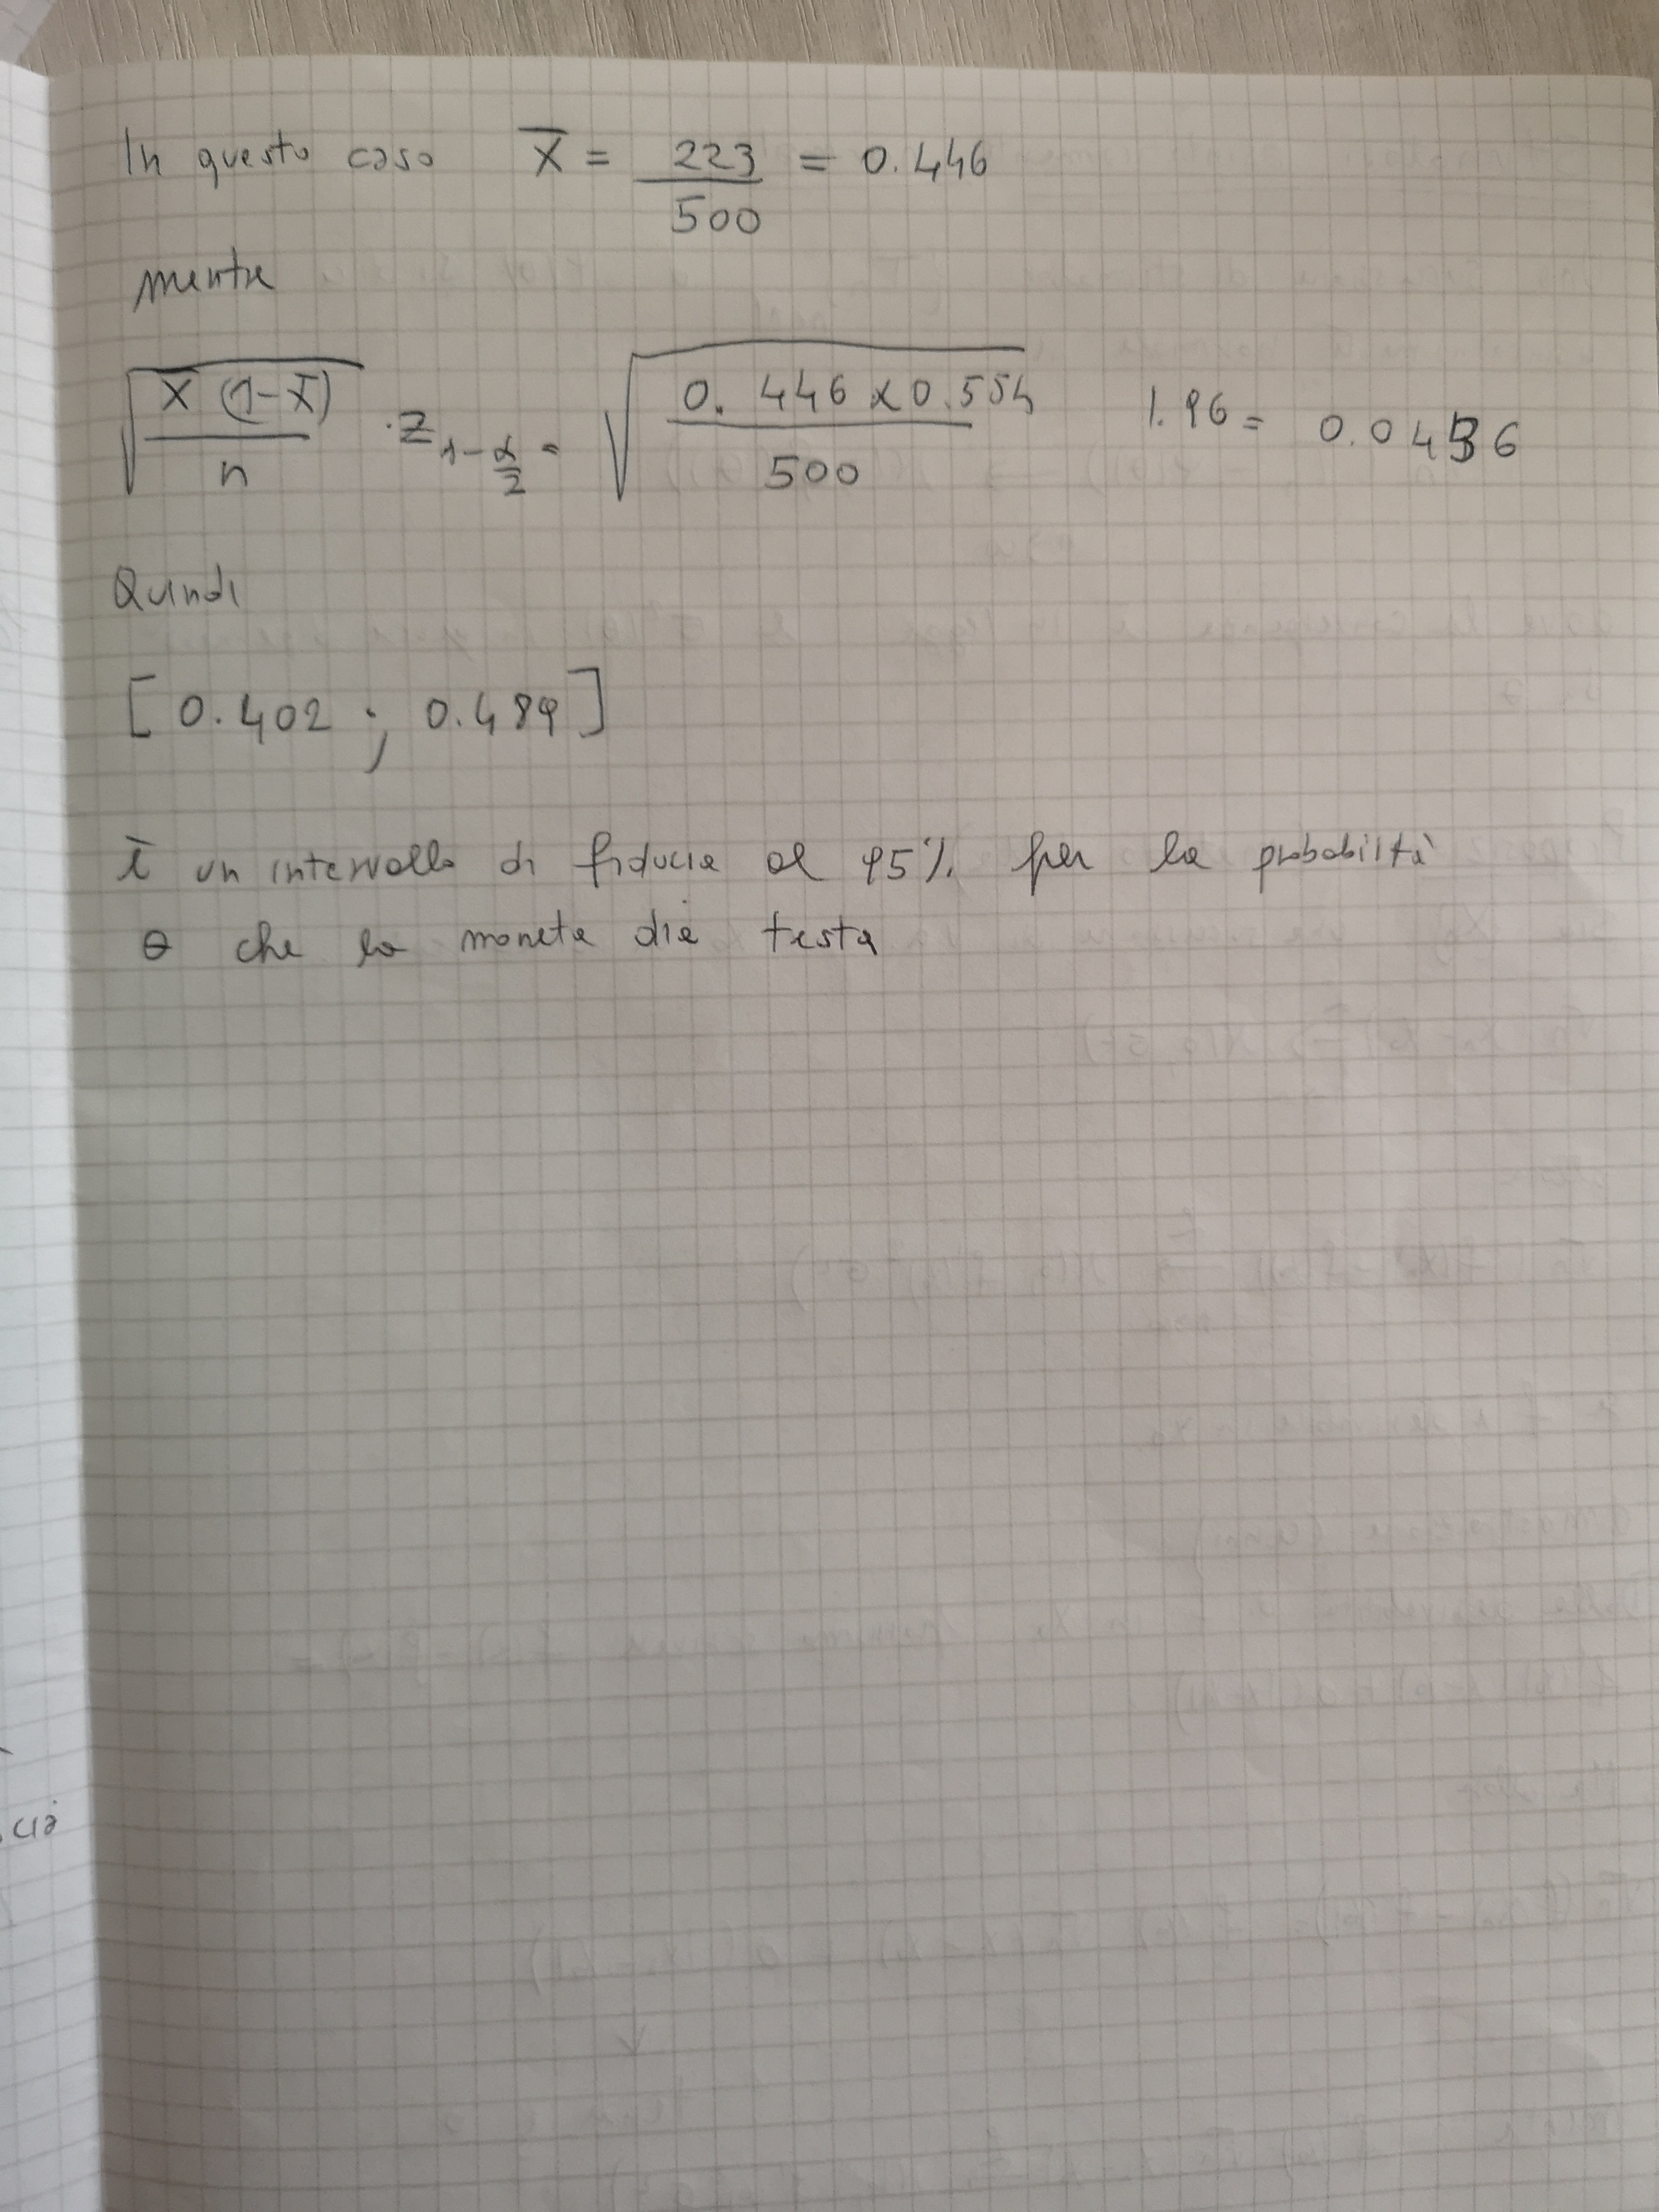 In questo caso X̄ = 223/500 = 0.446
mentre
√(X̄(1-X̄)/n) · Z_{1-α/2} = √(0.446 x 0.554/500) 1.96 = 0.0436
Quindi
[0.402 ; 0.489]
È un intervallo di fiducia al 95% per la probabilità
θ che la moneta dia testa